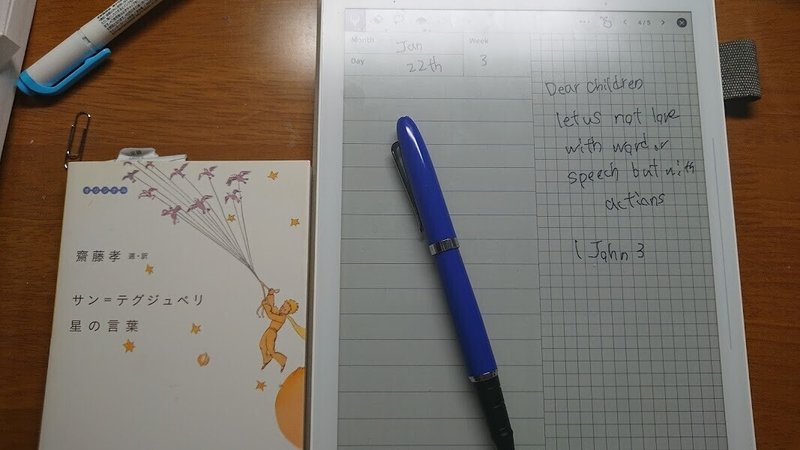 オリジナル
齋藤孝 選・訳
サン=テグジュペリ
星の言葉
4/5
Month Jan
Week 3
Day 22th
Dear children
let us not love
with word or
speech but with
actions
1 John 3